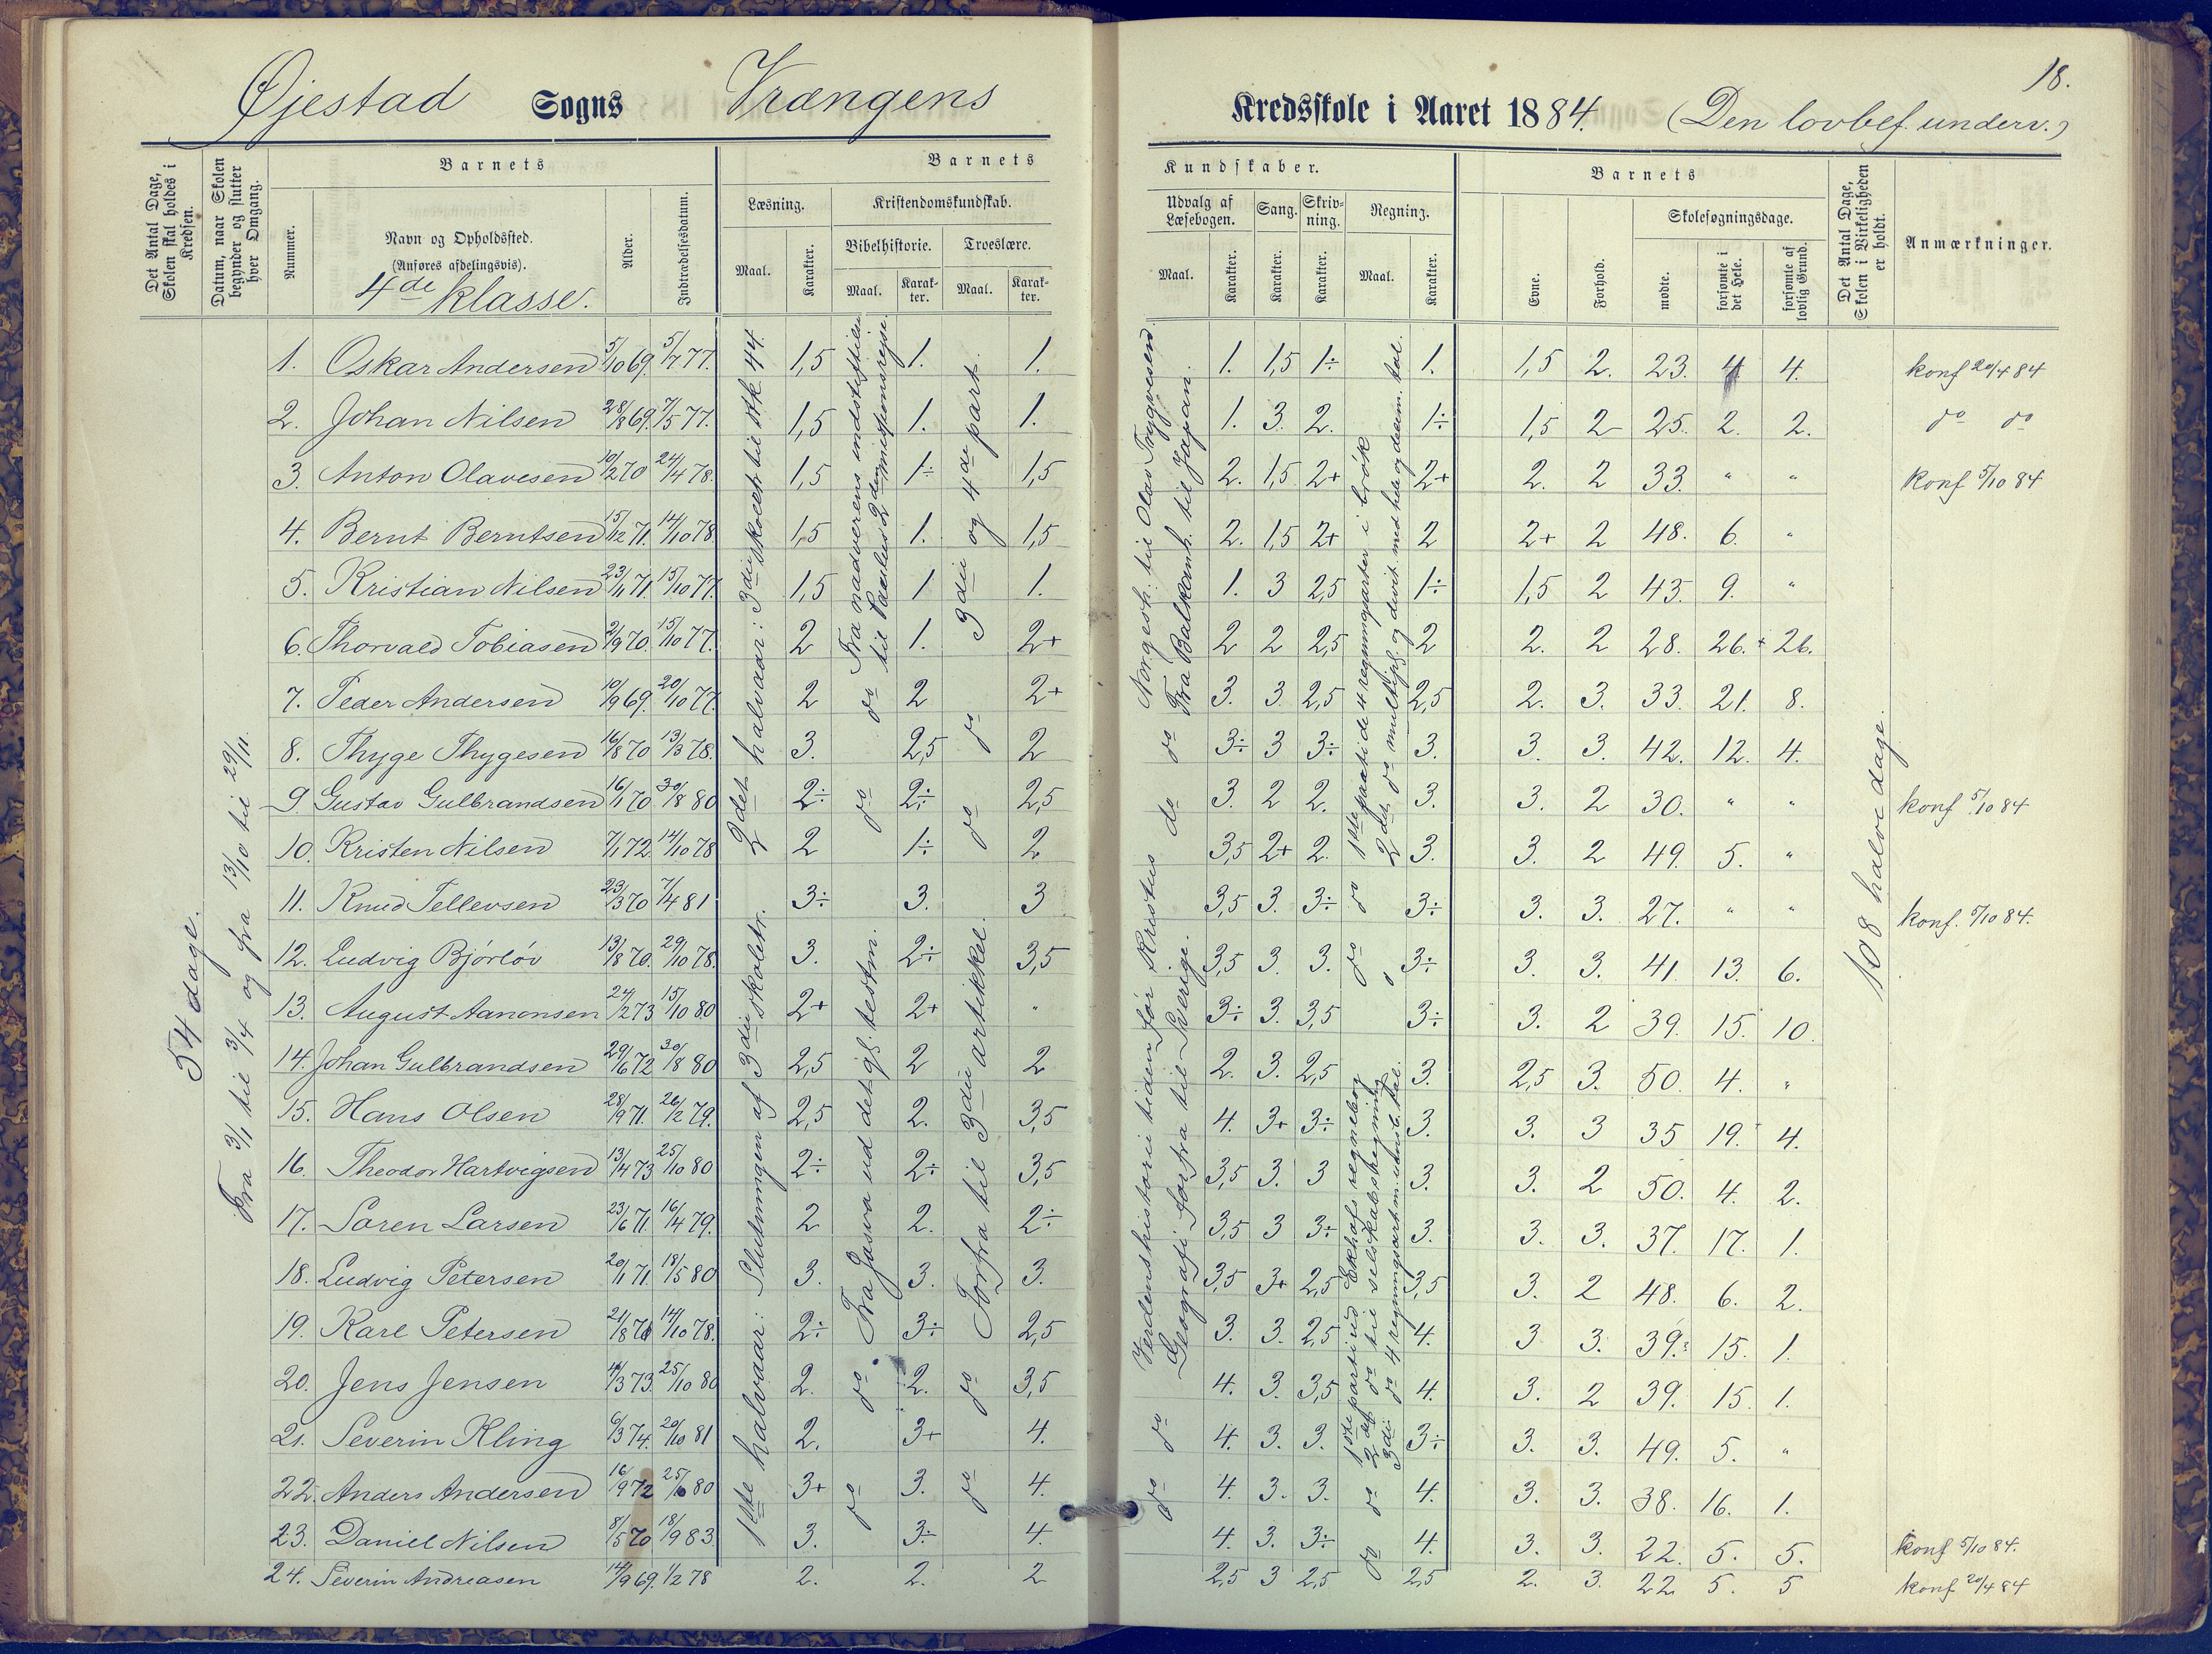 18.
Øjestad Sogns Vrængens Kredsskole i Aaret 1884. (Den lovbef. underv.)
Det Antal Dage, Skolen skal holdes i Kredsen.
Datum, naar Skolen begynder og slutter hver Omgang.
Barnets
Nummer.
Navn og Opholdssted.
(Anføres afdelingsvis).
4de klasse.
Alder.
Indtrædelsesdatum.
Barnets Kundskaber.
Læsning.
Maal.
Karakter.
Kristendomskundskab.
Bibelhistorie.
Maal.
Karakter.
Troeslære.
Maal.
Karakter.
Udvalg af Læsebogen.
Maal.
Karakter.
Sang.
Karakter.
Skrivning.
Karakter.
Regning.
Maal.
Karakter.
Barnets
Evne.
Forhold.
Skolesøgningsdage.
mødte.
forsømte i det Hele.
forsømte af lovlig Grund.
Det Antal Dage, Skolen i Virkeligheden er holdt.
Anmærkninger.
54 dage.
Fra 3/1 til 3/4 og fra 13/10 til 29/11.
1. Oskar Andersen 5/10 69. 5/7 77. 1,5 1. 1. 1. 1,5 1÷ 1. 1,5 2. 23. 4 4. konf 20/4 84
2. Johan Nilsen 28/8 69. 7/5 77. 1,5 1. 1. 1. 3. 2. 1÷ 1,5 2 25. 2. 2. do do
3. Anton Olavesen 10/2 70 24/4 78. 1,5 1÷ 1,5 2. 1,5 2+ 2+ 2. 2 33. " " konf 5/10 84
4. Bernt Berntsen 15/12 71. 14/10 78 1,5 1. 1,5 2. 1,5 2+ 2 2+ 2 48. 6. "
5. Kristian Nilsen 23/1 71. 15/10 77. 1,5 1 1. 1. 3 2,5 1÷ 1,5 2 43. 9. "
6. Thorvald Tobiasen 2/9 70. 15/10 77. 2 1. 2+ 2 2 2,5 2 2. 2 28. 26. 26.
7. Peder Andersen 10/9 69. 20/10 77. 2 2 2+ 3. 3. 2,5 2,5 2. 3. 33. 21. 8.
8. Thyge Thygesen 16/8 70 13/3 78. 3. 2,5 2 3÷ 3 3÷ 3. 3. 3. 42. 12. 4.
9. Gustav Gulbrandsen 16/1 70 30/8 80 2÷ 2÷ 2,5 3. 2 2. 3. 3. 2 30. " " konf 5/10 84
10. Kristen Nilsen 7/1 72. 14/10 78 2 1÷ 2 3,5 2+ 2. 3. 3. 2 49. 5. "
11. Knud Tellevsen 23/3 70 7/4 81 3÷ 3. 3 3,5 3. 3÷ 3÷ 3. 3. 27. " " konf. 5/10 84.
12. Ludvig Bjórlóv 13/8 70. 29/10 78. 3. 2÷ 3,5 3,5 3. 3. 3÷ 3. 3. 41. 13. 6.
13. August Aanonsen 24/2 73 15/10 80 2+ 2+ " 3÷ 3. 3,5 3÷ 3. 2 39. 15. 10.
14. Johan Gulbrandsen 29/6 72 30/8 80 2,5 2 2 2. 3. 2,5 3. 2,5 3. 50. 4. "
15. Hans Olsen 28/9 71. 26/2 79. 2,5 2. 3,5 4. 3+ 3÷ 3. 3. 3 35 19. 4.
16. Theodor Hartvigsen 13/4 73 25/10 80 2÷ 2÷ 3,5 3,5 3. 3 3. 3. 2 50. 4. 2.
17. Søren Larsen 23/6 71. 16/4 79. 2 2. 2÷ 3,5 3 3÷ 3. 3. 3. 37. 17. 1.
18. Ludvig Petersen 20/1 71. 18/5 80 3. 3. 3. 3,5 3+ 2,5 3,5 3. 2 48. 6. 2.
19. Karl Petersen 21/8 70 14/10 78. 2÷ 3÷ 2,5 3. 3. 2,5 4. 3 3. 39. 15. 1.
20. Jens Jensen 4/3 73. 25/10 80 2. 2. 3,5 4. 3. 3,5 4. 3. 2 39. 15. 1.
21. Severin Kling 6/3 74. 20/10 81 2. 3+ 4. 4. 3. 3. 3÷ 3. 3. 49. 5. "
22. Anders Andersen 16/9 72 25/10 80 3+ 3. 4. 4. 3. 3. 4. 3. 3. 38. 16. 1.
23. Daniel Nilsen 8/5 70 18/9 83. 3. 3÷ 4. 4. 3. 3÷ 4. 3. 3. 22. 5. 5. konf 5/10 84.
24. Severin Andreasen 14/9 69. 1/2 78 2. 2. 2 2,5 3 2,5 2,5 2. 3. 22 5. 5 konf 20/4 84
1ste halvaar: Slutningen af 3die skoletr.
2det halvaar: 3die skoletr. til stk. 44.
Fra Josva ud det gl. testm.
do do
Fra nadverens indstiftelse
til Paulus 2den missionsrejse.
do do
Forfra til 3die artikkel.
do do
3die og 4de part.
do do
Verdenshistorie tiden før Kristus
Geografi: forfra til Sverige.
do do
Norgesh. til Olav Trygvesen
Fra Balkanh. til Japan.
do do
1ste parti ud Ekhofs regnebog
2det do til selskabsregning
3die do 4 regningsart m. ubenb. tal.
do do
1ste parti de 4 regningsarter i brøk
2det do multipl. og divis. med hele og decim. tal.
do do
108 halve dage.